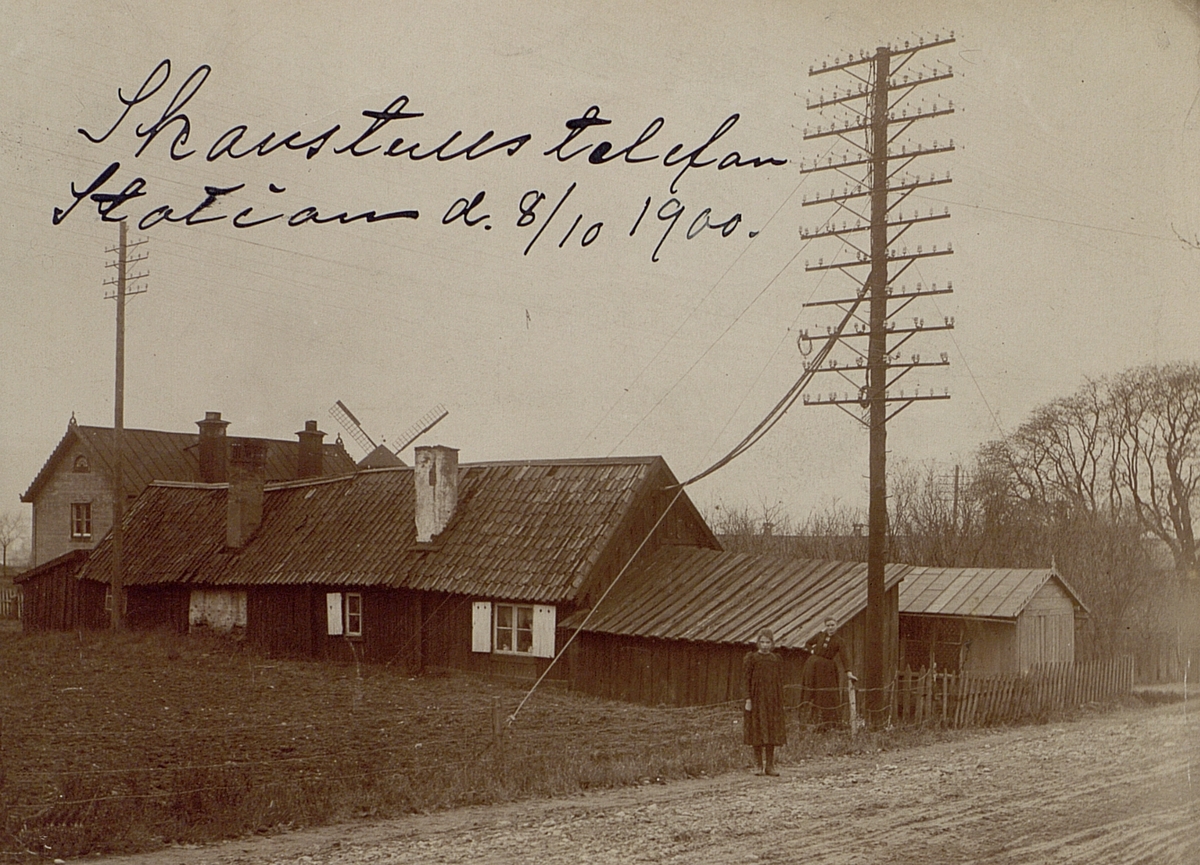 Skanstulls telefon
Station d. 8/10 1900.